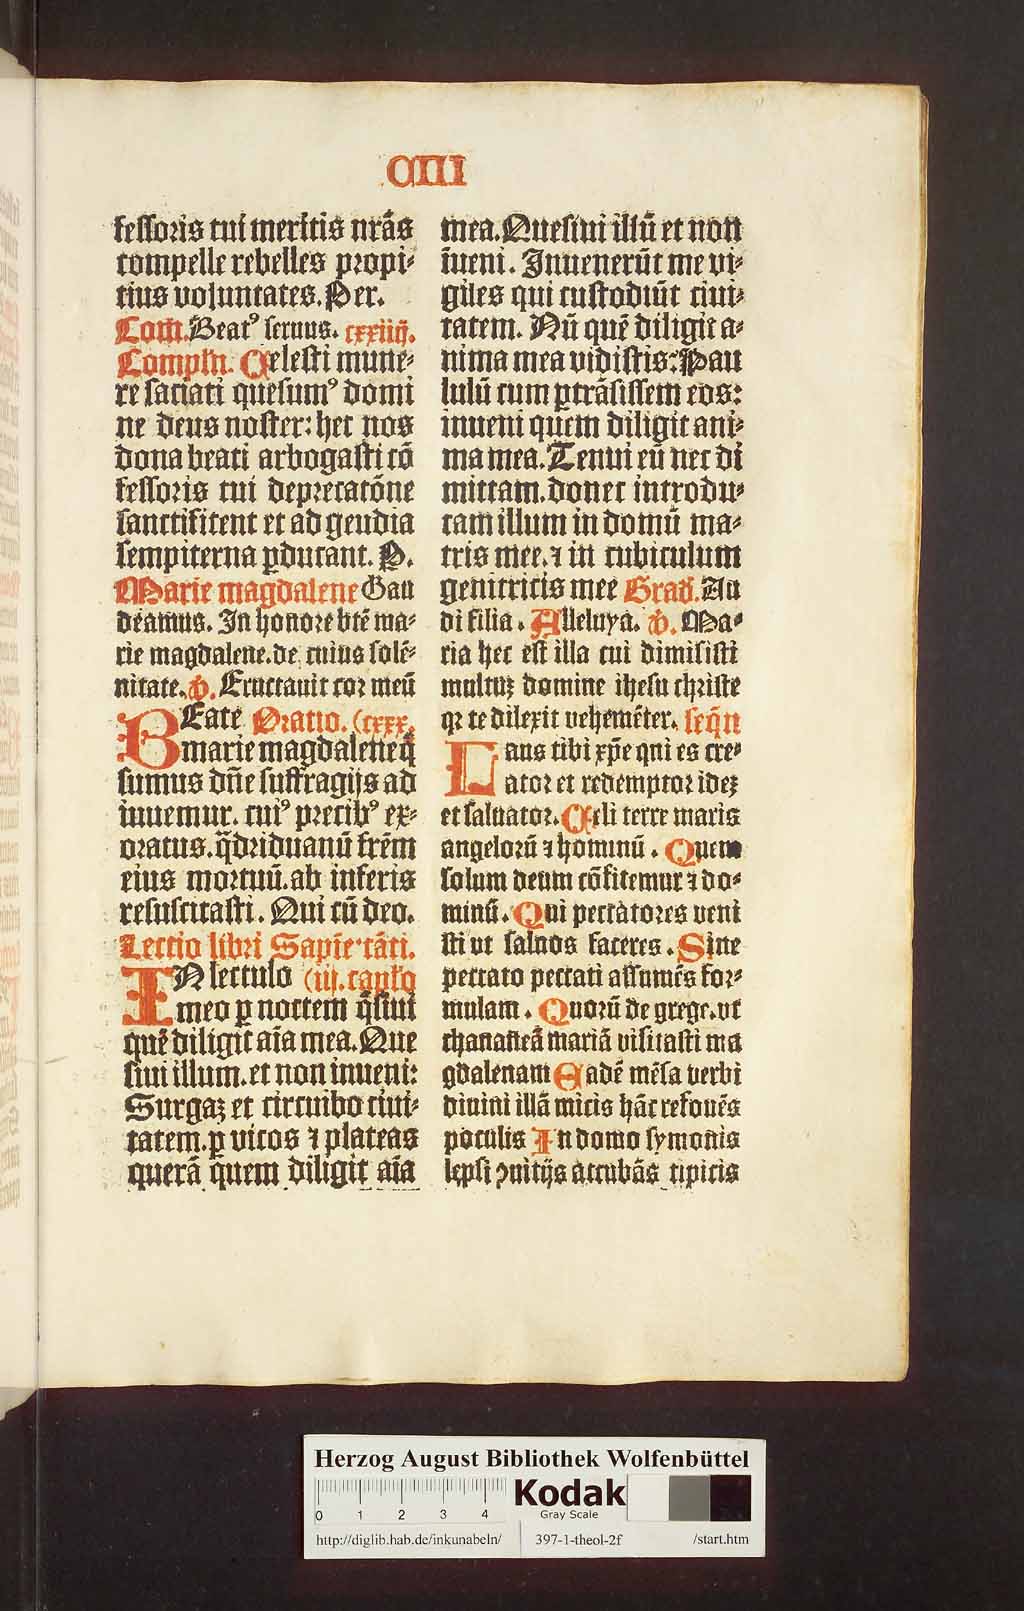 CIII
fessoris tui meritis nrās
compelle rebelles propi⸗
tius voluntates. Per.
Com̄. Beatꝰ seruus. cxxiiij.
Complṇ. Celesti mune⸗
re saciati quesumꝰ domi
ne deus noster: hec nos
dona beati arbogasti cō
fessoris tui deprecatōne
sanctificent et ad geudia
sempiterna ꝓducant. P.
Marie magdalene Gau
deamus. In honore btē ma⸗
rie magdalene. de cuius solē⸗
nitate. ℣. Eructauit cor meū
BEate Oratio. (cxxx.
marie magdalene q̄
sumus dn̄e suffragijs ad
iuuemur. cuiꝰ precibꝰ ex⸗
oratus. q̄driduanū frēm
eius mortuū. ab inferis
resuscitasti. Qui cū deo.
Lectio libri Sapīe⸱cāti.
IN lectulo (iij. capło
meo ꝑ noctem q̄siui
quē diligit aīa mea. Que
siui illum. et non inueni:
Surgaꝫ et circuibo ciui⸗
tatem. ꝑ vicos ⁊ plateas
querā quem diligit aīa
mea. Quesiui illū et non
īueni. Inuenerūt me vi⸗
giles qui custodiūt ciui⸗
tatem. Nū quē diligit a⸗
nima mea vidistis: Pau
lulū cum ꝑtrāsissem eos:
inueni quem diligit ani⸗
ma mea. Tenui eū nec di
mittam. donec introdu⸗
cam illum in domū ma⸗
tris mee. ⁊ in cubiculum
genitricis mee Grad̄. Au
di filia. Alleluya. ℣. Ma⸗
ria hec est illa cui dimisisti
multuꝫ domine ihesu christe
qꝛ te dilexit vehemēter. seq̄n
Laus tibi xp̄e qui es cre⸗
ator et redemptor ideꝫ
et saluator. Celi terre maris
angelorū ⁊ hominū. Quem
solum deum cōfitemur ⁊ do⸗
minū. Qui peccatores veni
sti vt saluos faceres. Sine
peccato peccati assumēs for⸗
mulam. Quorū de grege. vt
chananeā mariā visitasti ma
gdalenam Eadē mēsa verbi
diuini illā micis hāc refouēs
poculis In domo symonis
lepsi ꝯuiuijs accubās tipicis
Herzog August Bibliothek Wolfenbüttel
0 1 2 3 4
Kodak
Gray Scale
http://diglib.hab.de/inkunabeln/ 397-1-theol-2f /start.htm